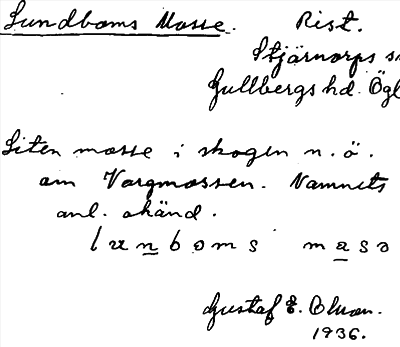 Lundboms Mosse. Rist.
Stjärnorps s
Gullbergs hd. Ögl
Liten mosse i skogen n.ö.
om Vargmossen. Namnets
anl. okänd.
lunboms
Gustaf E. Olson.
1936.